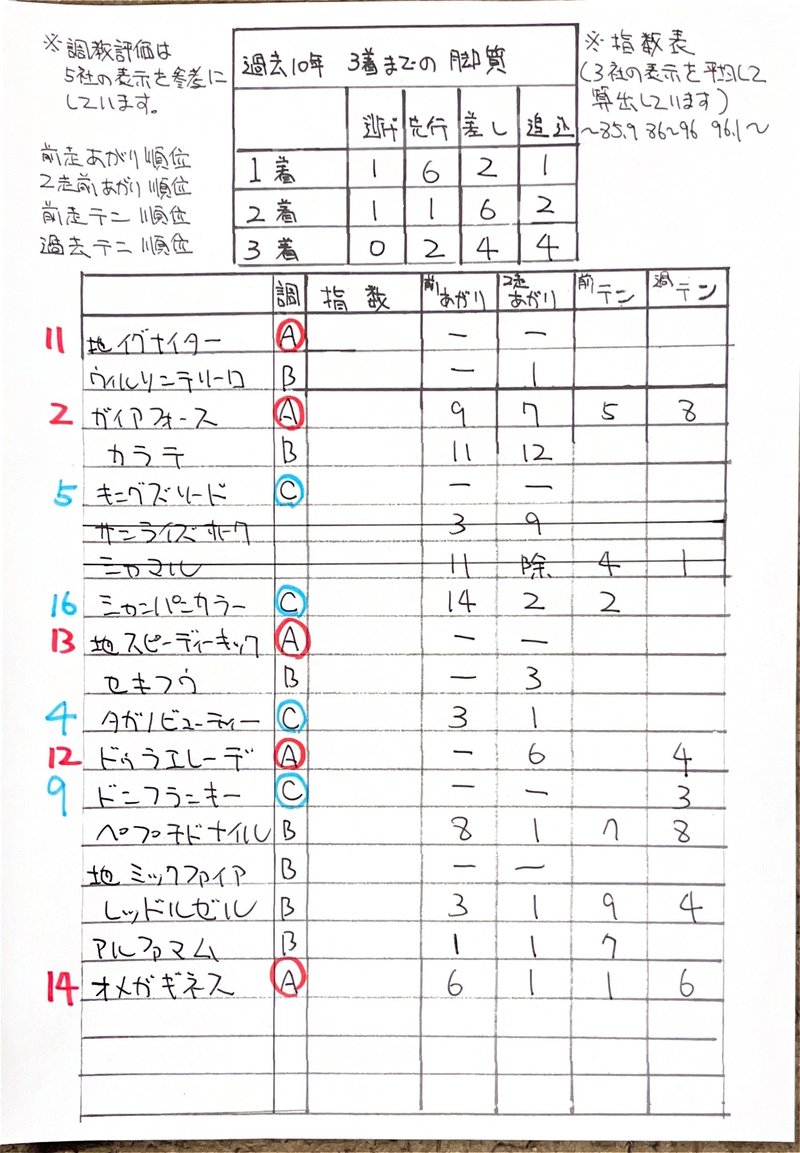 ※調教評価は
5社の表示を参考に
しています。
前走あがり順位
2走前あがり順位
前走テン順位
過去テン順位
過去10年 3着までの脚質
逃げ 先行 差し 追込
1着 1 6 2 1
2着 1 1 6 2
3着 0 2 4 4
※指数表
(3社の表示を平均して
算出しています)
～85.9 86～96 96.1～
調 指数 前あがり 2走あがり 前テン 過テン
11 地イグナイター A ー ー
ウィルソンテソーロ B ー 1
2 ガイアフォース A 9 7 5 8
カラテ B 11 12
5 キングズソード C ー ー
サンライズホーク 3 9
シカマル 11 除 4 1
16 シャンパンカラー C 14 2 2
13 地スピーディーキック A ー ー
セキフウ B ー 3
4 タガノビューティー C 3 1
12 ドゥラエレーデ A ー 6 4
9 ドンフランキー C ー ー 3
ペプチドナイル B 8 1 7 8
地ミックファイア B ー ー
レッドルゼル B 3 1 9 4
アルファマム B 1 1 7
14 オメガギネス A 6 1 1 6